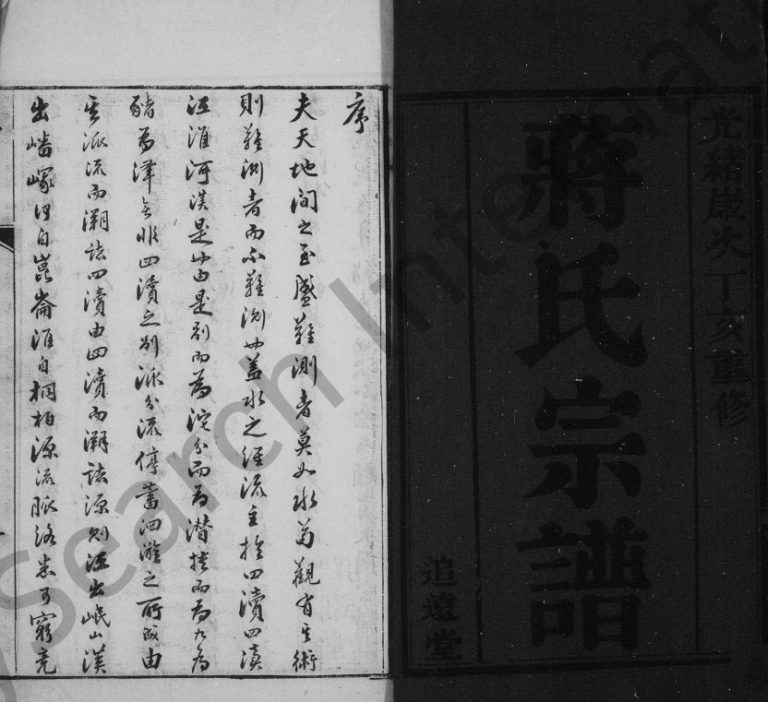 光緒歲次丁亥重修
蔣氏宗譜
追遠堂
序
夫天地間之至盛難測者莫如水苟觀有其術
則難測者而不難測也蓋水之經流主於四瀆四瀆
江淮河漢是也由是別而為沱分而為潛播而為九為
豬為澤無非四瀆之別派分流停蓄洄漩之所致由
其派流而溯諸四瀆由四瀆而溯諸源則江出岷山漢
出嶓冢河自崑崙淮自桐柏源流脈絡悉可窮究
My Search International